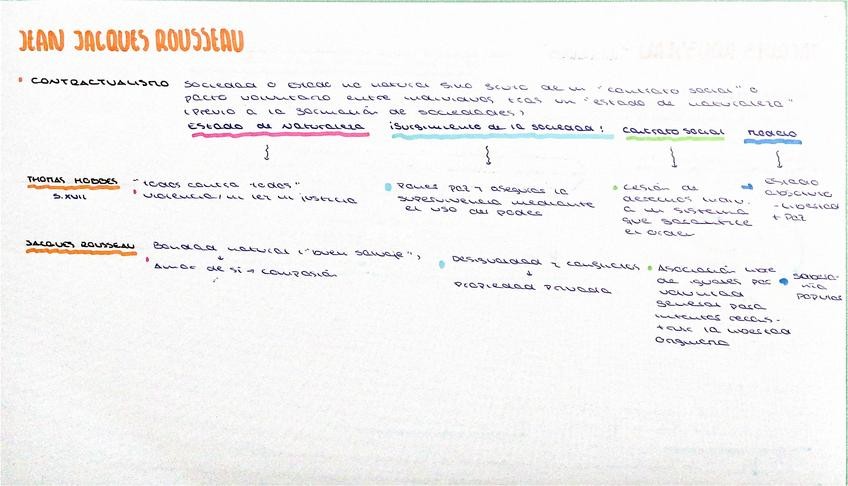 JEAN JACQUES ROUSSEAU
CONTRACTUALISMO sociedad o Estado no natural sino fruto de un "contrato social" o
pacto voluntario entre individuos tras un "estado de naturaleza"
(previo a la formación de sociedades)
Estado de Naturaleza ¡Surgimiento de la sociedad! Contrato social Modelo
THOMAS HOBBES
S. XVII
- "todos contra todos"
violencia/ni ley ni justicia
Poner paz y asegurar la
supervivencia mediante
el uso del poder
Cesión de
derechos indiv.
a un sistema
que garantice
el orden
Estado
absoluto
- libertad
+ paz
JACQUES ROUSSEAU
Bondad natural ("buen salvaje")
Amor de sí → compasión
Desigualdad y conflictos
Propiedad privada
Asociación libre
de iguales por
voluntad
general para
intentar resti-
tuir la libertad
originaria
Sobera-
nía
popular